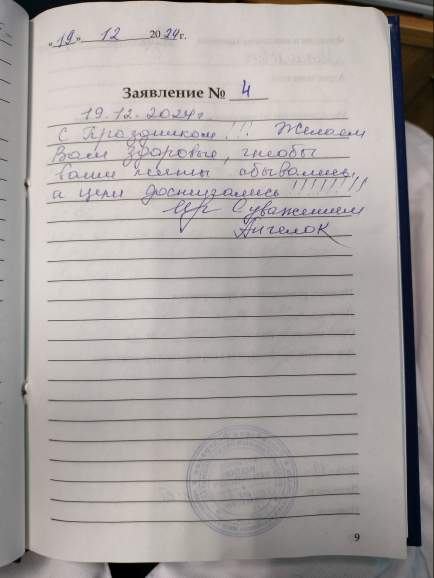 « 19 » 12 2024 г.
Заявление № 4
19.12.2024 г
С Праздником!!! Желаем
Вам здоровье, чтобы
ваши мечты сбывались,
а цели достигались!!!!!!!!!
С уважением
Ангелок
9